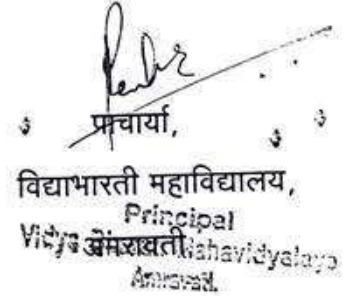 प्राचार्या,
विद्याभारती महाविद्यालय,
अमरावती.
Principal
Vidya Mahavidyalaya
Amravati.